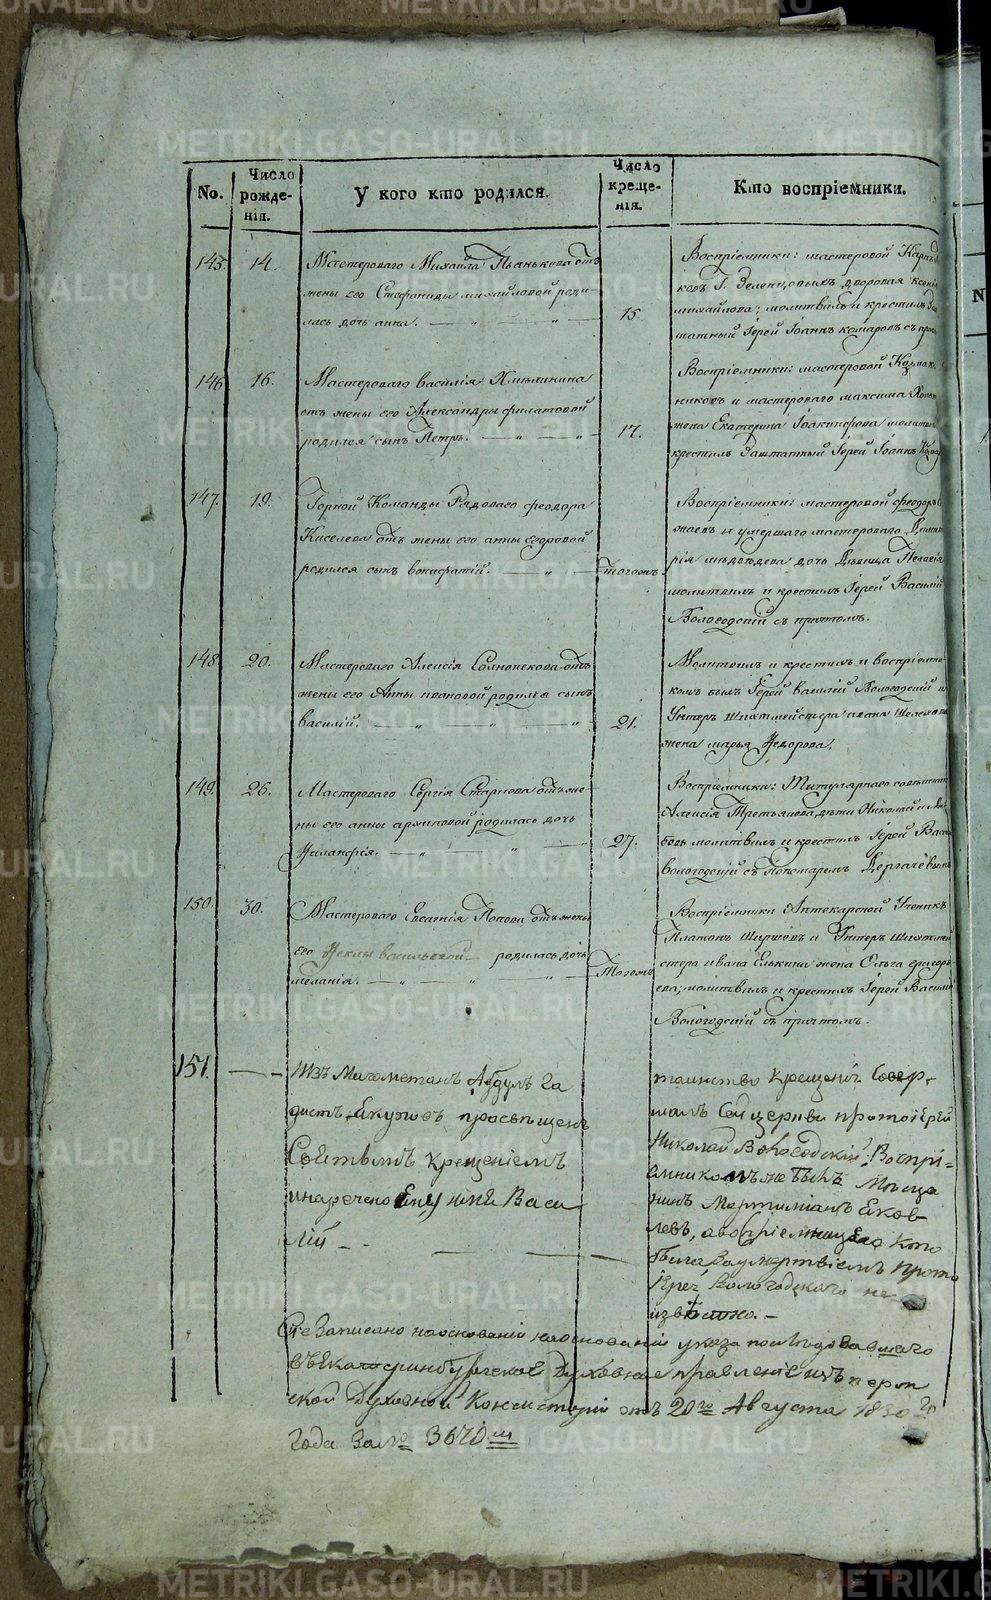 No.
Число рожде-
нія.
У кого кто родился.
Число
креще-
нія.
Кто воспріемники.
145. 14.
Мастероваго Михаила Пьанькова отъ
жены его Стефаниды михайловой роди
лась дочь анна.
15.
Воспріемники: мастеровой
ковъ Г. Зеленцовыхъ дворовая
михайлова; молитвилъ и крестилъ
штатный Іерей Іоаннъ комаровъ съ
146. 16.
Мастероваго василія Хмелинина
отъ жены его Александры филатовой
родился сынъ Петръ.
17.
Воспріемники: мастеровой Козма
никовъ и мастероваго максима
жена Екатерина Іоакинфова
крестилъ Заштатный Іерей Іоаннъ
147. 19.
Горной Команды Рядоваго феодора
Киселева отъ жены его анны егоровой
родился сынъ вонифатій.
Тогожъ
Воспріемники: мастеровой феодоръ
жаевъ и умершаго мастероваго Дмит
рія медведева дочь Девица Пелагія
молитвилъ и крестилъ Іерей Василій
Вологодскій съ причтомъ.
148. 20.
Мастероваго Алексія Солнопекова отъ
жены его Анны ивановой родился сынъ
василій.
21.
Молитвилъ и крестилъ и воспріемни-
комъ былъ Іерей василій Вологодскій и
Унтеръ Шихтмейстера ивана
жена марья Федорова.
149. 26.
Мастероваго Сергія Старкова отъ же
ны его анны архиповой родилась дочь
27.
Воспріемники: Титулярнаго советника
Алексія Третьякова дети Николай и Лю
бовь молитвилъ и крестилъ Іерей Васи
вологодскій съ Пономаремъ Дергачевымъ
150. 30.
Мастероваго Евгенія Попова отъ жены
его Феклы васильевой родилась дочь
меланія.
Тогожъ
Воспріемники Аптекарской Ученикъ
Платонъ Ширшовъ и Унтеръ Шихтмей
стера ивана Елькина жена Ольга григорь
ева; молитвилъ и крестилъ Іерей Василій
Вологодскій съ причтомъ.
151.
Изъ Магометанъ Абдулъ Га
дистъ Екуповъ просвещенъ
Святымъ крещеніемъ
и наречено Ему имя Васи
лій
таинство крещенія Совер-
шалъ Сей церкви протоіерей
Николай Вологодскій; Воспрі-
емникомъ же былъ Меща
нинъ Мартиміанъ Яков
левъ, а воспріемницею кто
была за умертвіемъ прото
іерея Вологодскаго не-
известно.
Сіе Записано на основаніи на основаніи указа последовавшаго
въ Екатеринбургское Духовное правленіе изъ перм
ской Духовной Консисторіи отъ 20го Августа 1830го
года за № 3670м
METRIKI.GASO-URAL.RU